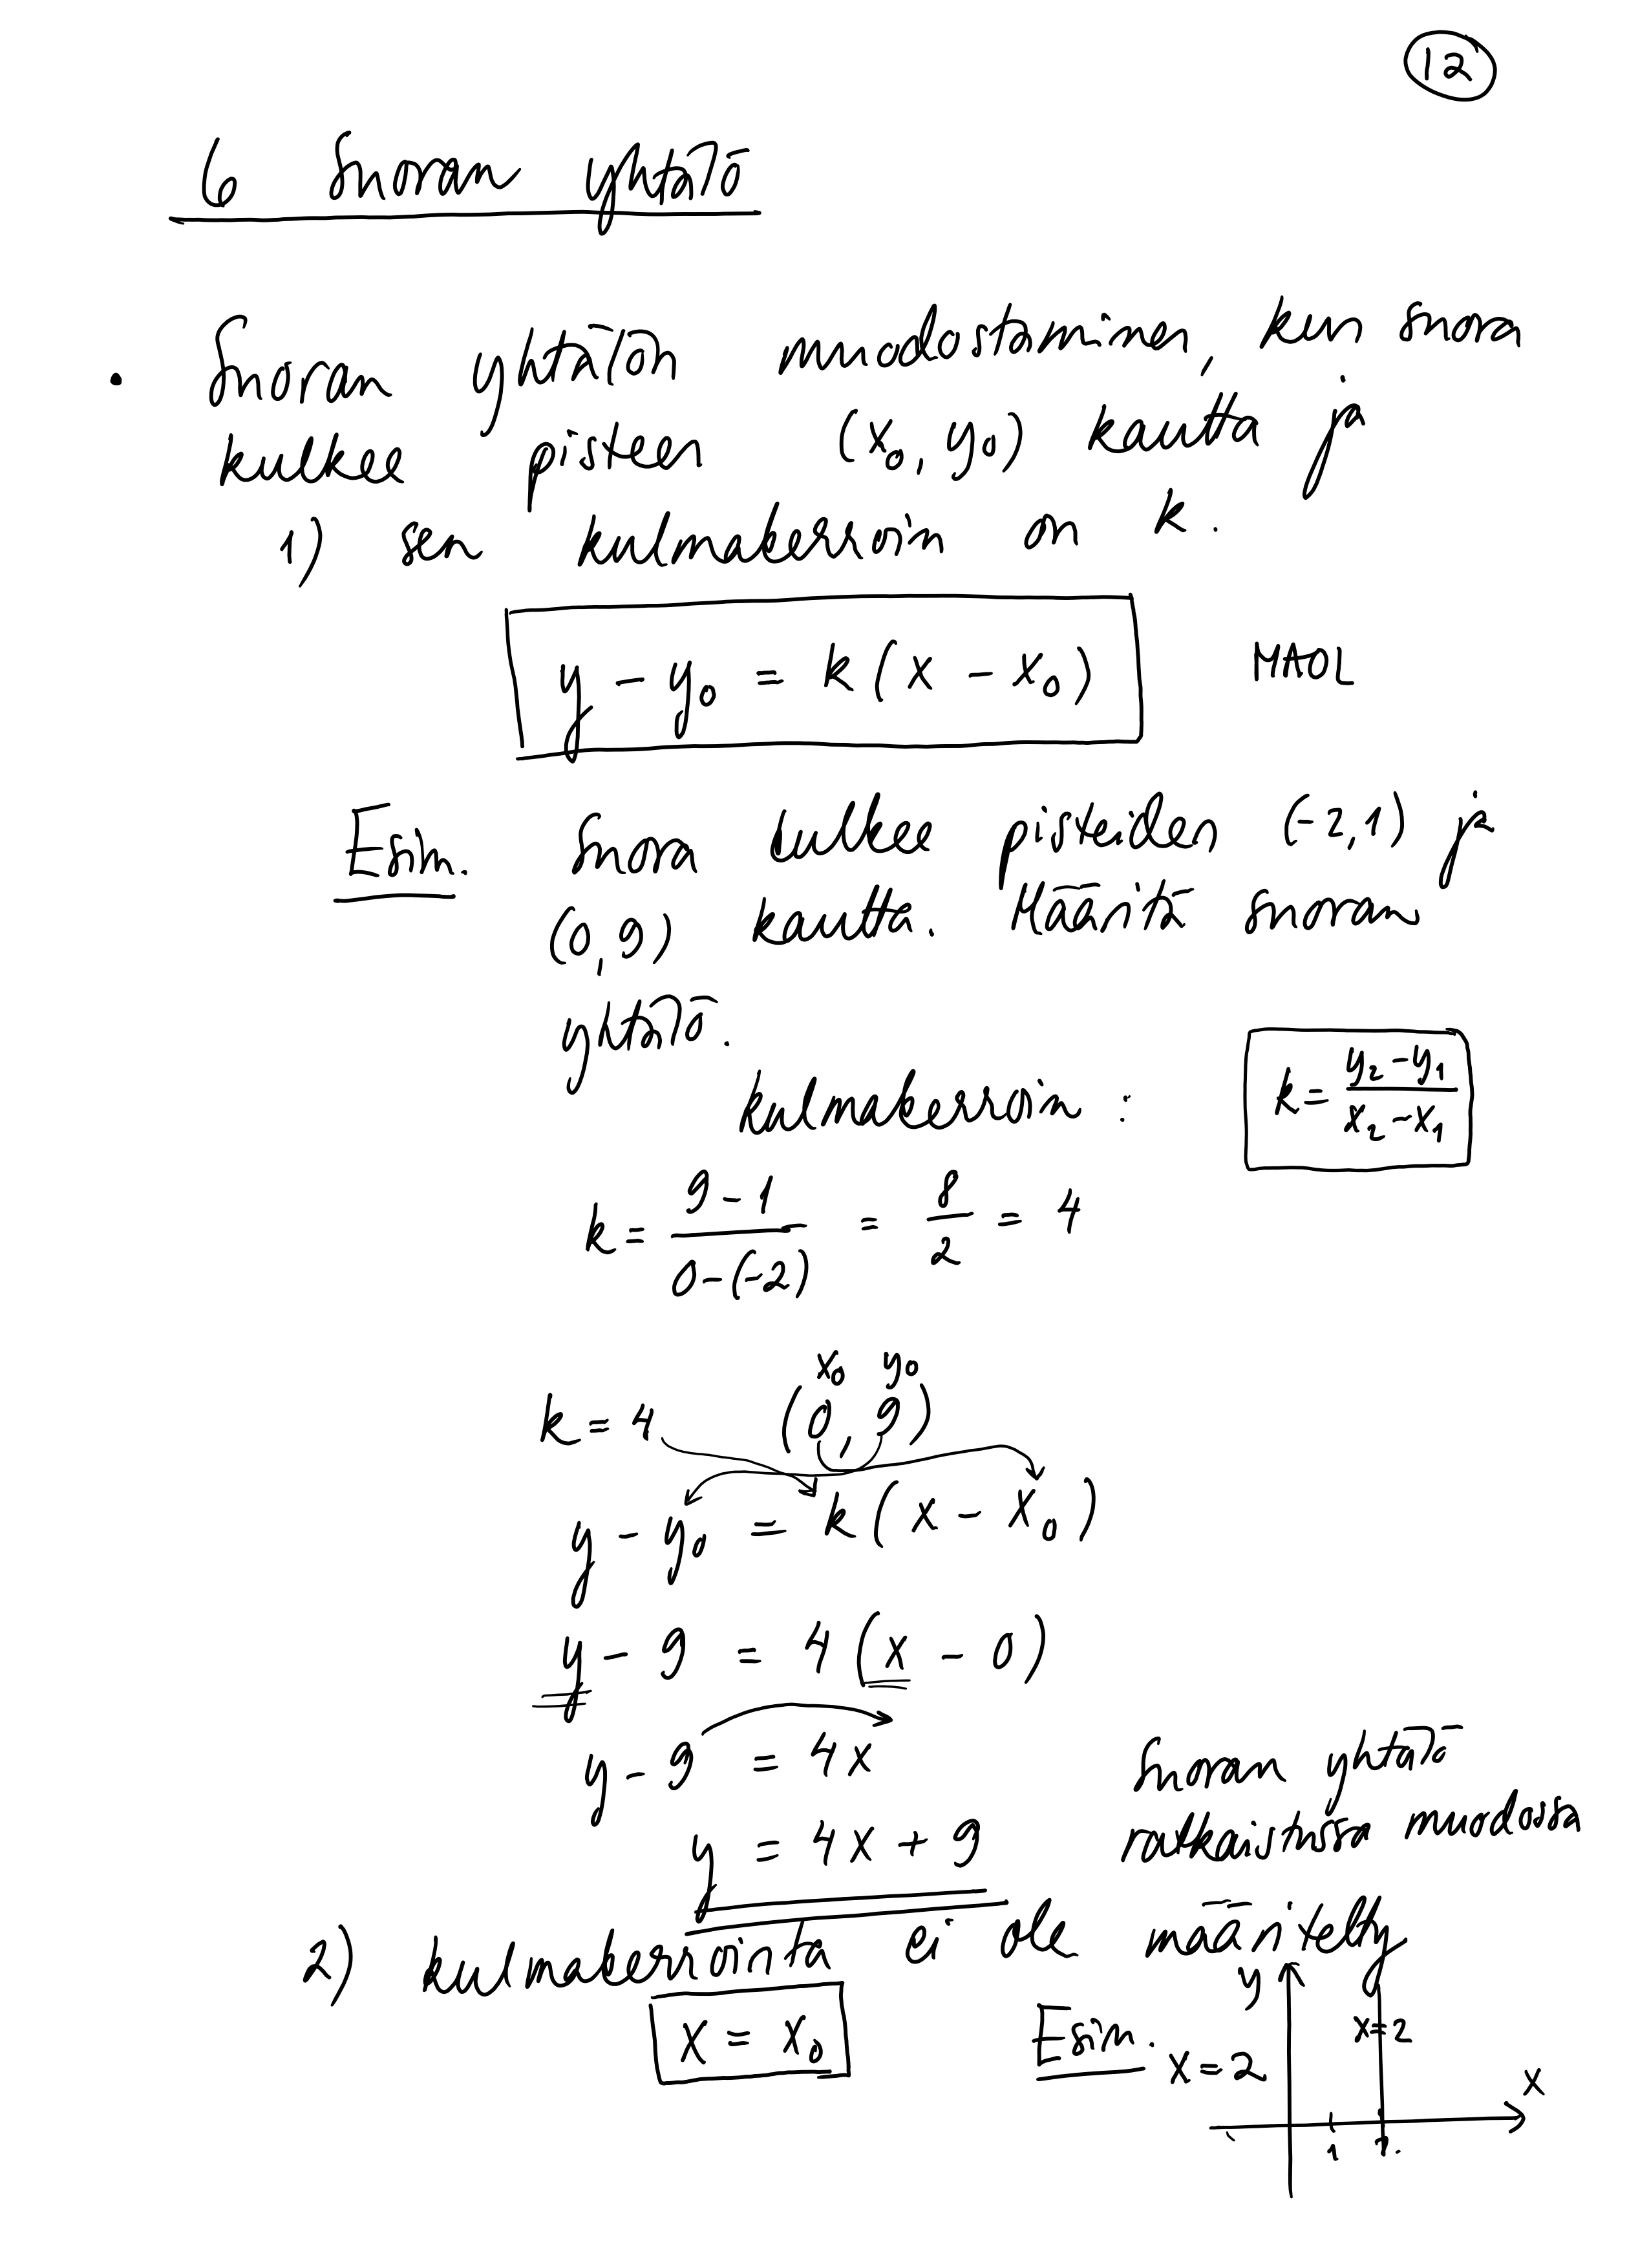 12
6 Suoran yhtälö
• Suoran yhtälön muodostaminen, kun suora
kulkee pisteen (x₀, y₀) kautta ja
1) sen kulmakerroin on k.
y - y₀ = k(x - x₀) MAOL
Esim. Suora kulkee pisteiden (-2,1) ja
(0,9) kautta. Määritä suoran
yhtälö.
kulmakerroin : k = (y₂ - y₁)/(x₂ - x₁)
k = (9 - 1)/(0 - (-2)) = 8/2 = 4
x₀ y₀
k = 4 (0, 9)
y - y₀ = k(x - x₀)
y - 9 = 4(x - 0)
y - 9 = 4x Suoran yhtälö
y = 4x + 9 ratkaistussa muodossa
2) kulmakerrointa ei ole määritelty
x = x₀ Esim. x = 2
y
x = 2
x
1 2